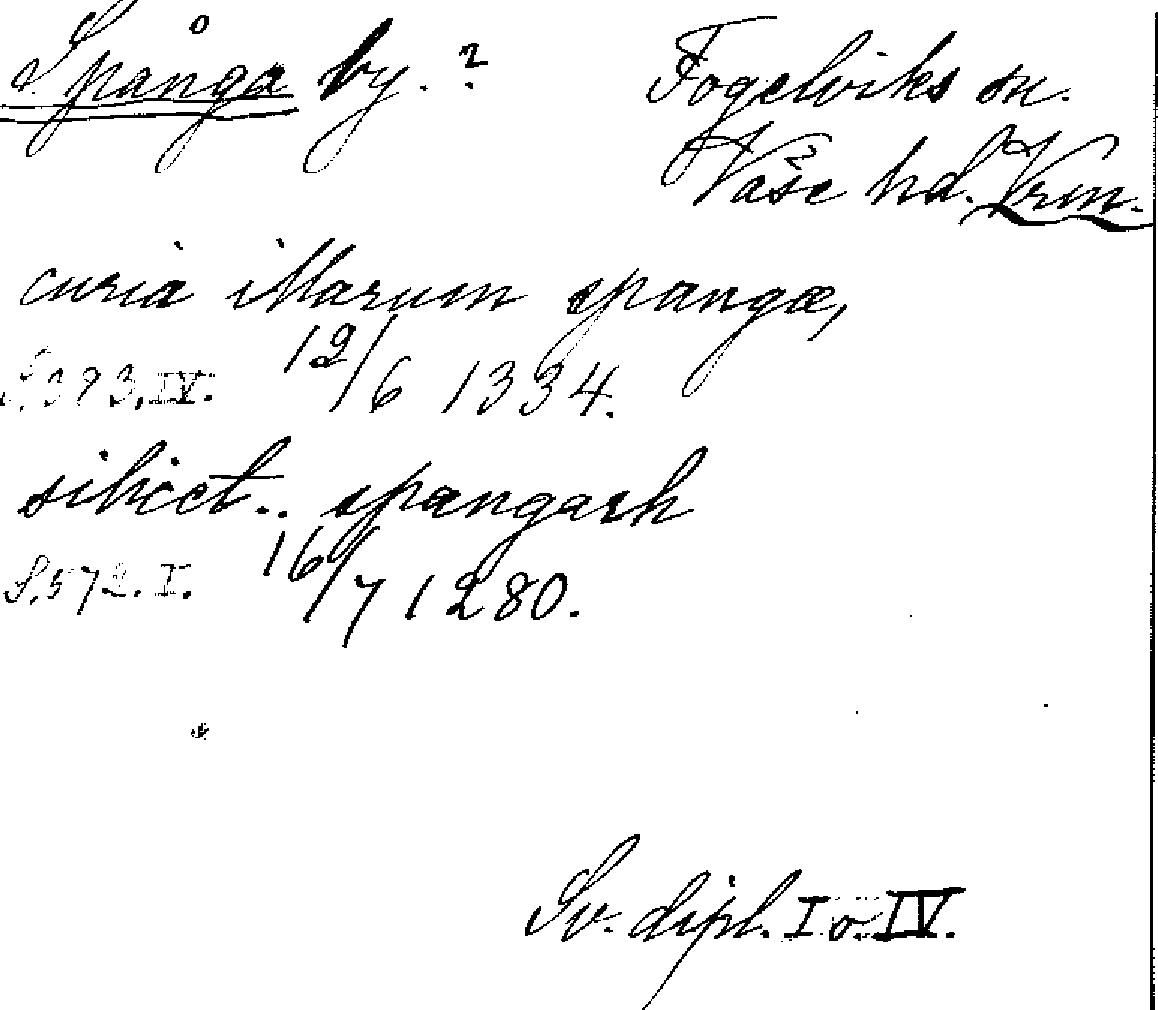 Spånga by. ? Fogelviks sn.
Väse hd. Vrm.
curia illarum spangæ,
S. 393, IV. 12/6 1334.
silicet.. spangarh
S. 572. I. 16/7 1280.
Sv. dipl. I o. IV.